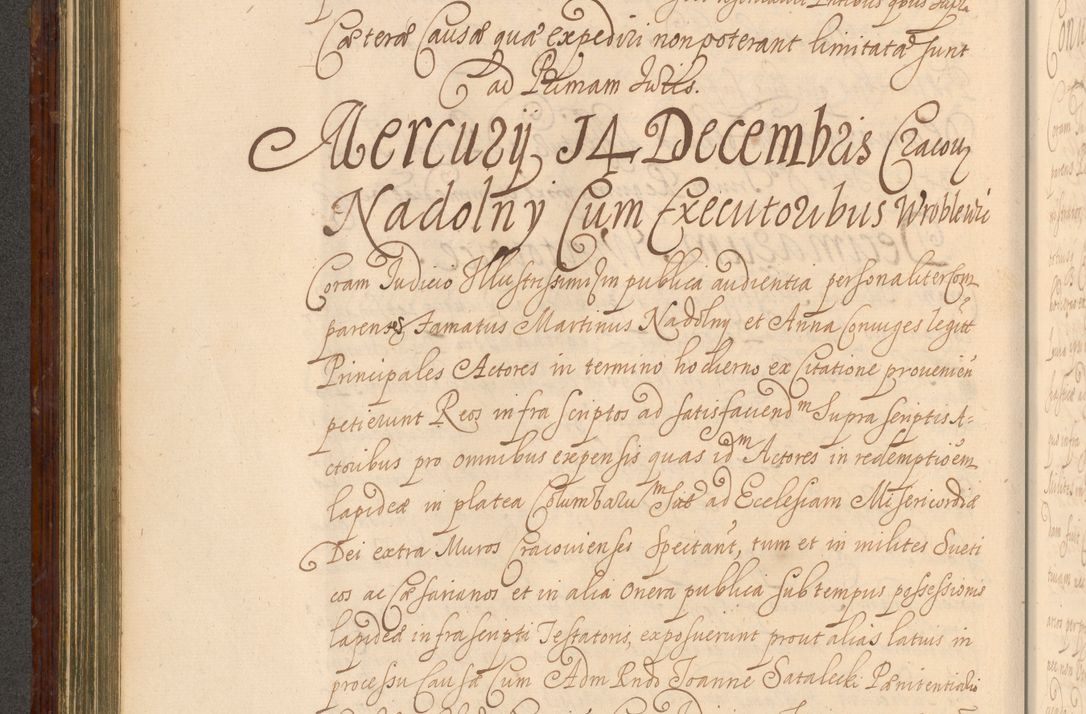 Cæteræ Causæ quæ expediri non poterant limitatæ sunt
ad Primam Juris.
Mercurÿ 14 Decembris Cracov
Nadolny Cum Executoribus Wroblewi
Coram Judicio Illustrissimi in publica audientia personaliter com
parens Famatus Martinus Nadolny et Anna Coniuges legitt
Principales Actores in termino hodierno ex Citatione provenien
petierunt Reos infra scriptos ad satisfaciend m supra scriptis A-
ctoribus pro omnibus expensis quas id m Actores in redemptioem
lapideæ in platea Columbaru m sitæ ad Ecclesiam Misericordiæ
Dei extra Muros Cracoviensis spectant, tum et in milites Sueti
cos ac Cæsarianos et in alia onera publica sub tempus possessionis
lapideæ infrascripti Testatoris, exposuerunt prout alias latius in
processu Causæ Cum Adm Rndo Joanne Satalecki Pænitentiario